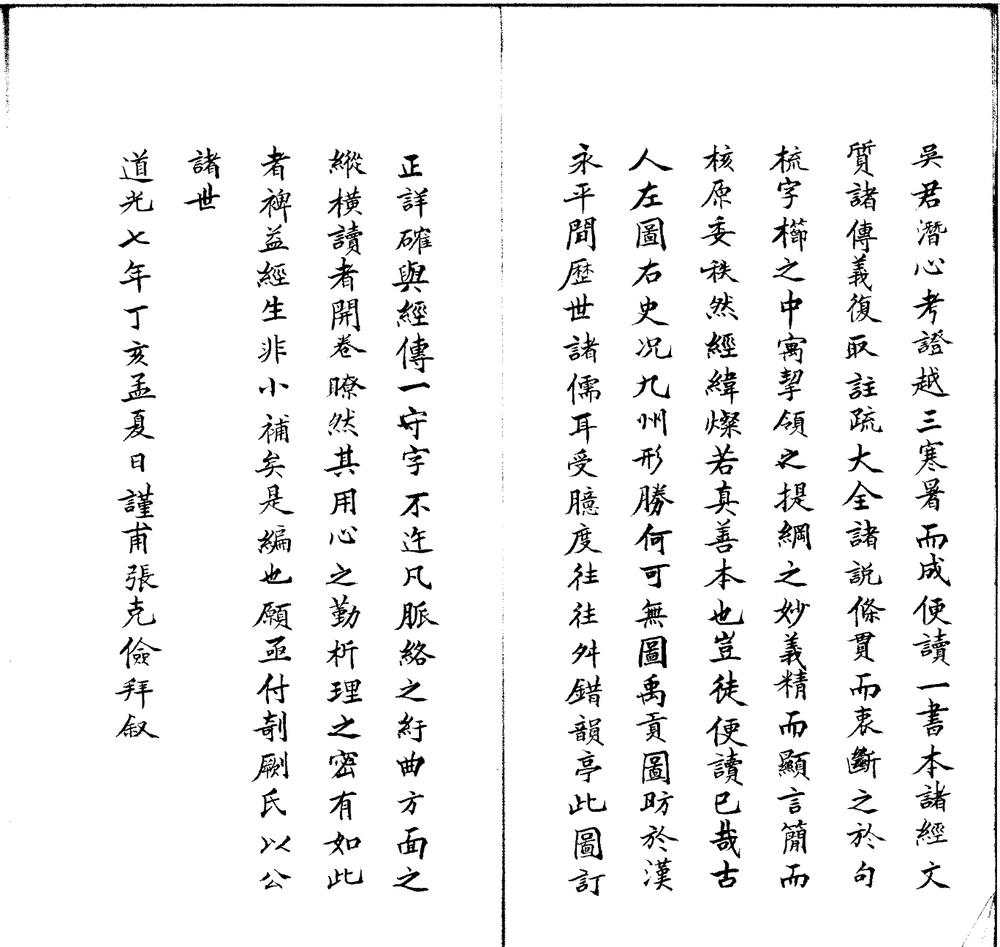 吳君潛心考證越三寒暑而成便讀一書本諸經文
質諸傳義復取註疏大全諸說條貫而衷斷之於句
梳字櫛之中寓挈領之提綱之妙義精而顯言簡而
核原委秩然經緯燦若真善本也豈徒便讀已哉古
人左圖右史况九州形勝何可無圖禹貢圖昉於漢
永平間歷世諸儒耳受臆度往往舛錯韻亭此圖訂
正詳確與經傳一守字不迕凡脈絡之紆曲方面之
縱橫讀者開卷瞭然其用心之勤析理之密有如此
者裨益經生非小補矣是編也願亟付剞劂氏以公
諸世
道光七年丁亥孟夏日謹甫張克儉拜叙